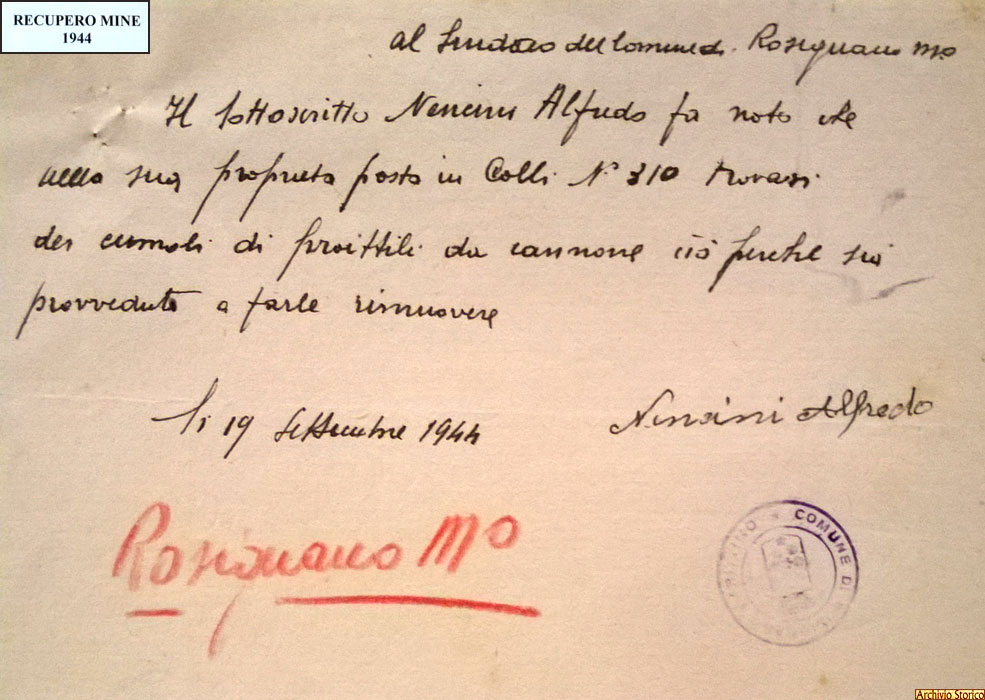 RECUPERO MINE
1944
al Sindaco del Comune di Rosignano Mo
Il sottoscritto Nencini Alfredo fa noto che
nella sua proprieta posta in Colli N° 310 trovasi
dei cumoli di proittili da cannone ciò perche sia
provveduto a farle rimuovere
li 19 Settembre 1944
Nencini Alfredo
Rosignano Mo
COMUNE DI
Archivio Storico